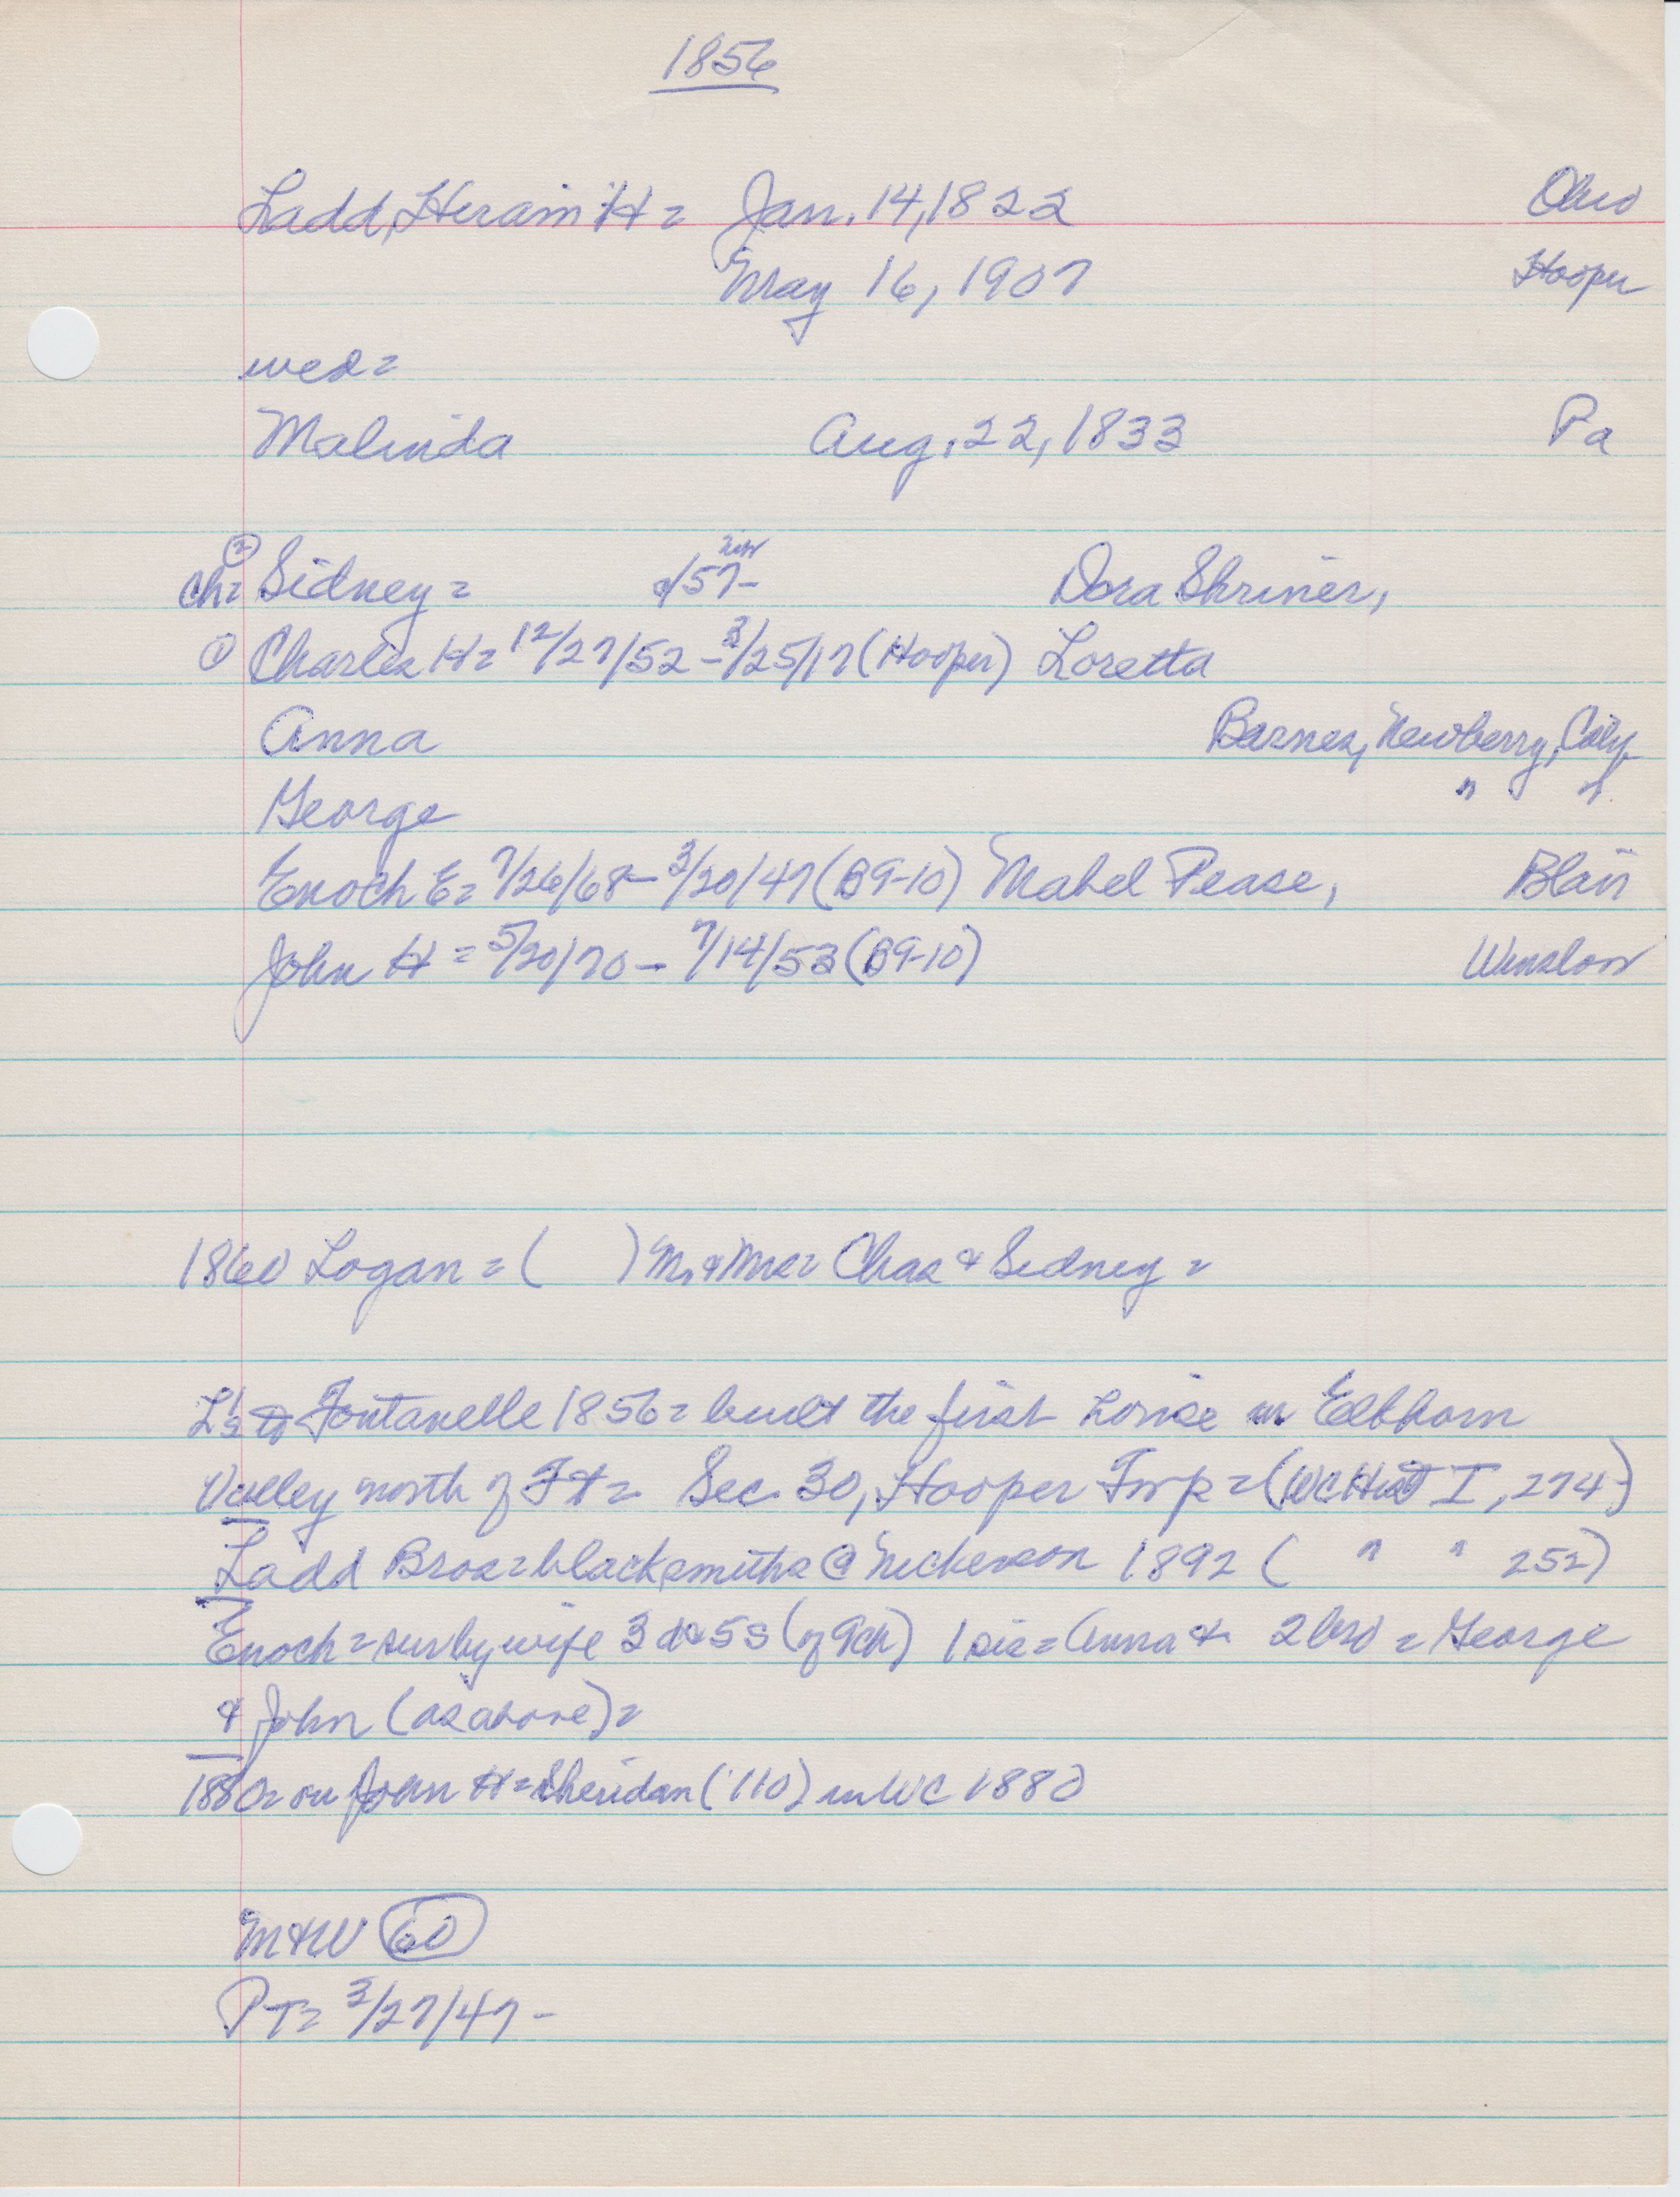 1856
Ladd, Hiram H = Jan. 14, 1822 Ohio
May 16, 1907 Hooper
wed =
Malinda Aug. 22, 1833 Pa
② ch = Sidney = /57- Dora Shriner,
① Charles H = 12/27/52 - 3/25/17 (Hooper) Loretta
Anna Barnes, Newberry, Calif
George " "
Enoch E = 7/26/68 - 3/20/47 (B9-10) Mabel Pease, Blair
John H = 5/20/70 - 7/14/53 (B9-10) Winslow
1860 Logan = ( ) Mr & Mrs = Chas & Sidney =
L's to Fontanelle 1856 = built the first house in Elkhorn
Valley north of Ft = Sec. 30, Hooper Twp = (WC Hist I, 274)
Ladd Bros = blacksmiths @ Nickerson 1892 ( " " 252)
Enoch = sur by wife 3 d & 5 s (of 9 ch) 1 sis = Anna & 2 bro = George
& John (as above) =
1880 = on John H = Sheridan ('110) in WC 1880
M & W 60
PT = 3/27/47 -